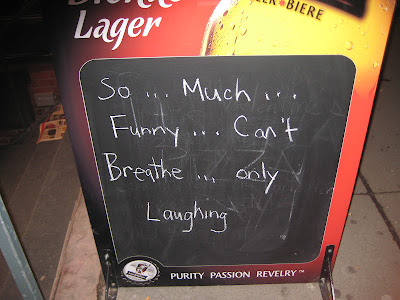 Lager
BEER • BIERE
So ... Much ...
Funny ... Can't
Breathe ... only
Laughing
PURITY PASSION REVELRY™